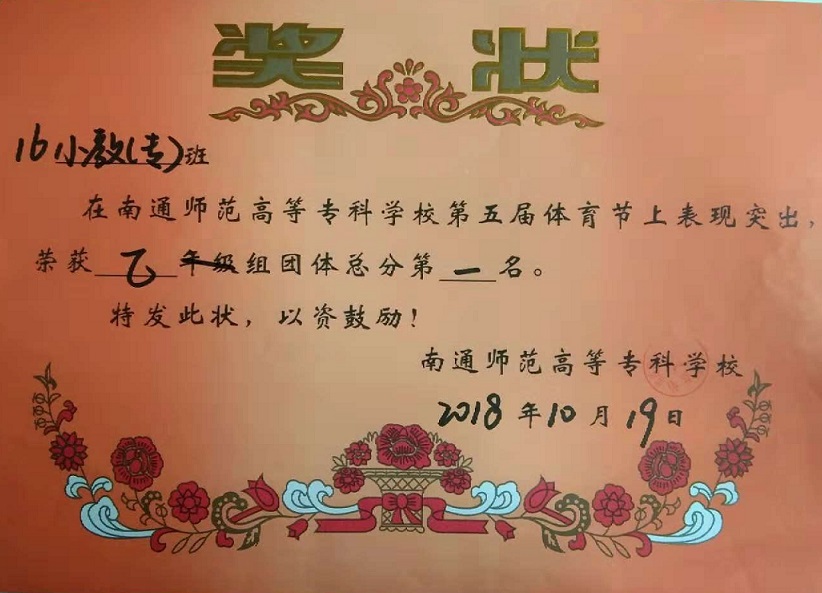 奖状
16小教(专)班
在南通师范高等专科学校第五届体育节上表现突出，
荣获乙年级组团体总分第一名。
特发此状，以资鼓励！
南通师范高等专科学校
2018年10月19日